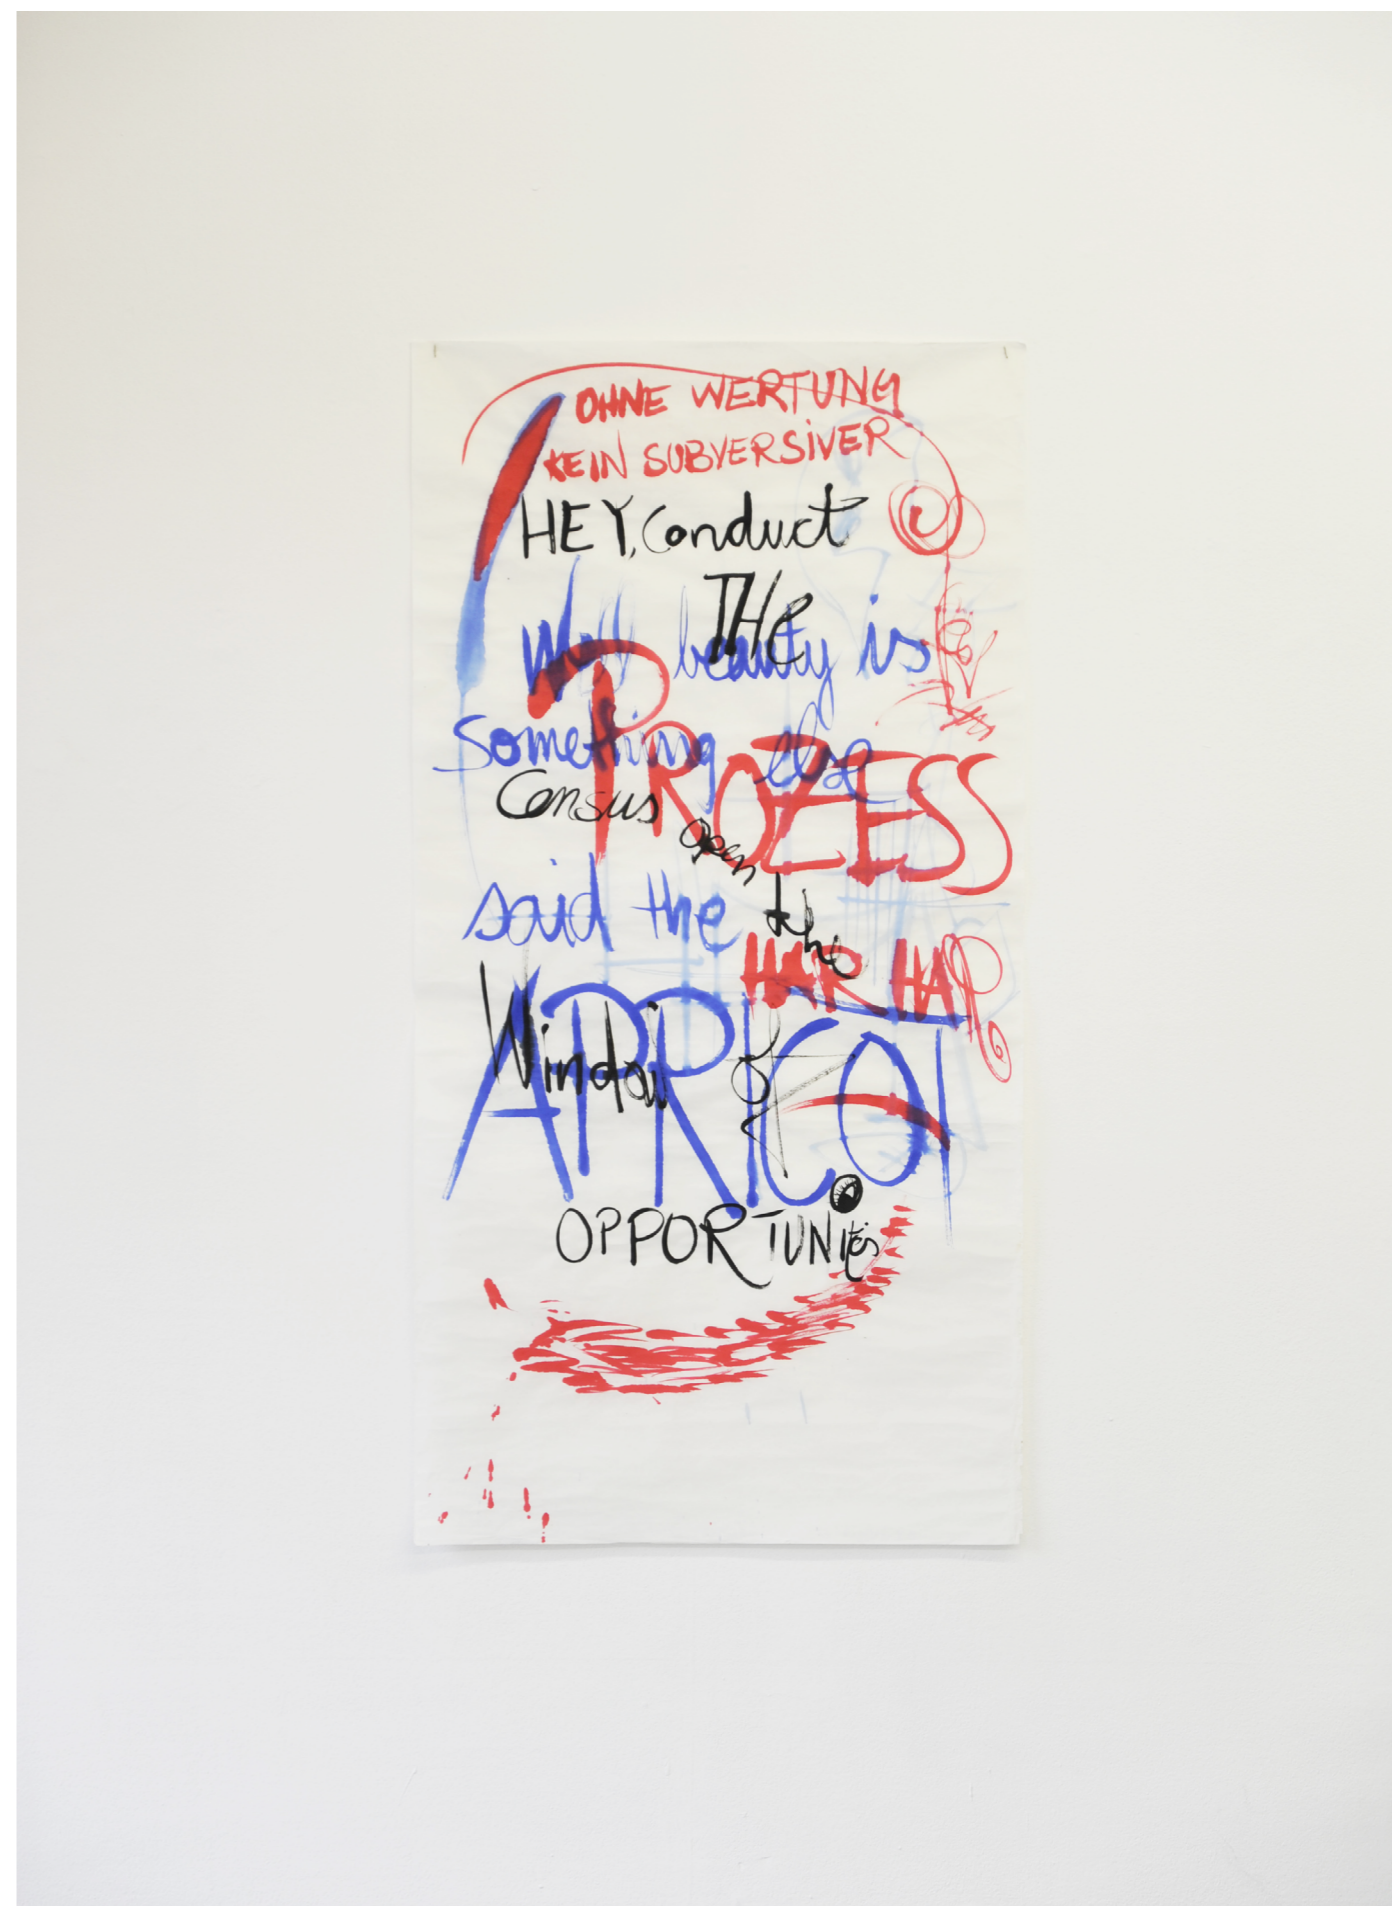 OHNE WERTUNG
KEIN SUBVERSIVER
HEY, Conduct
THE
Well beauty is
PROZESS
something else
Census open the
said the
HAR HAR
Window of
APRICOT
OPPORTUNItiEs